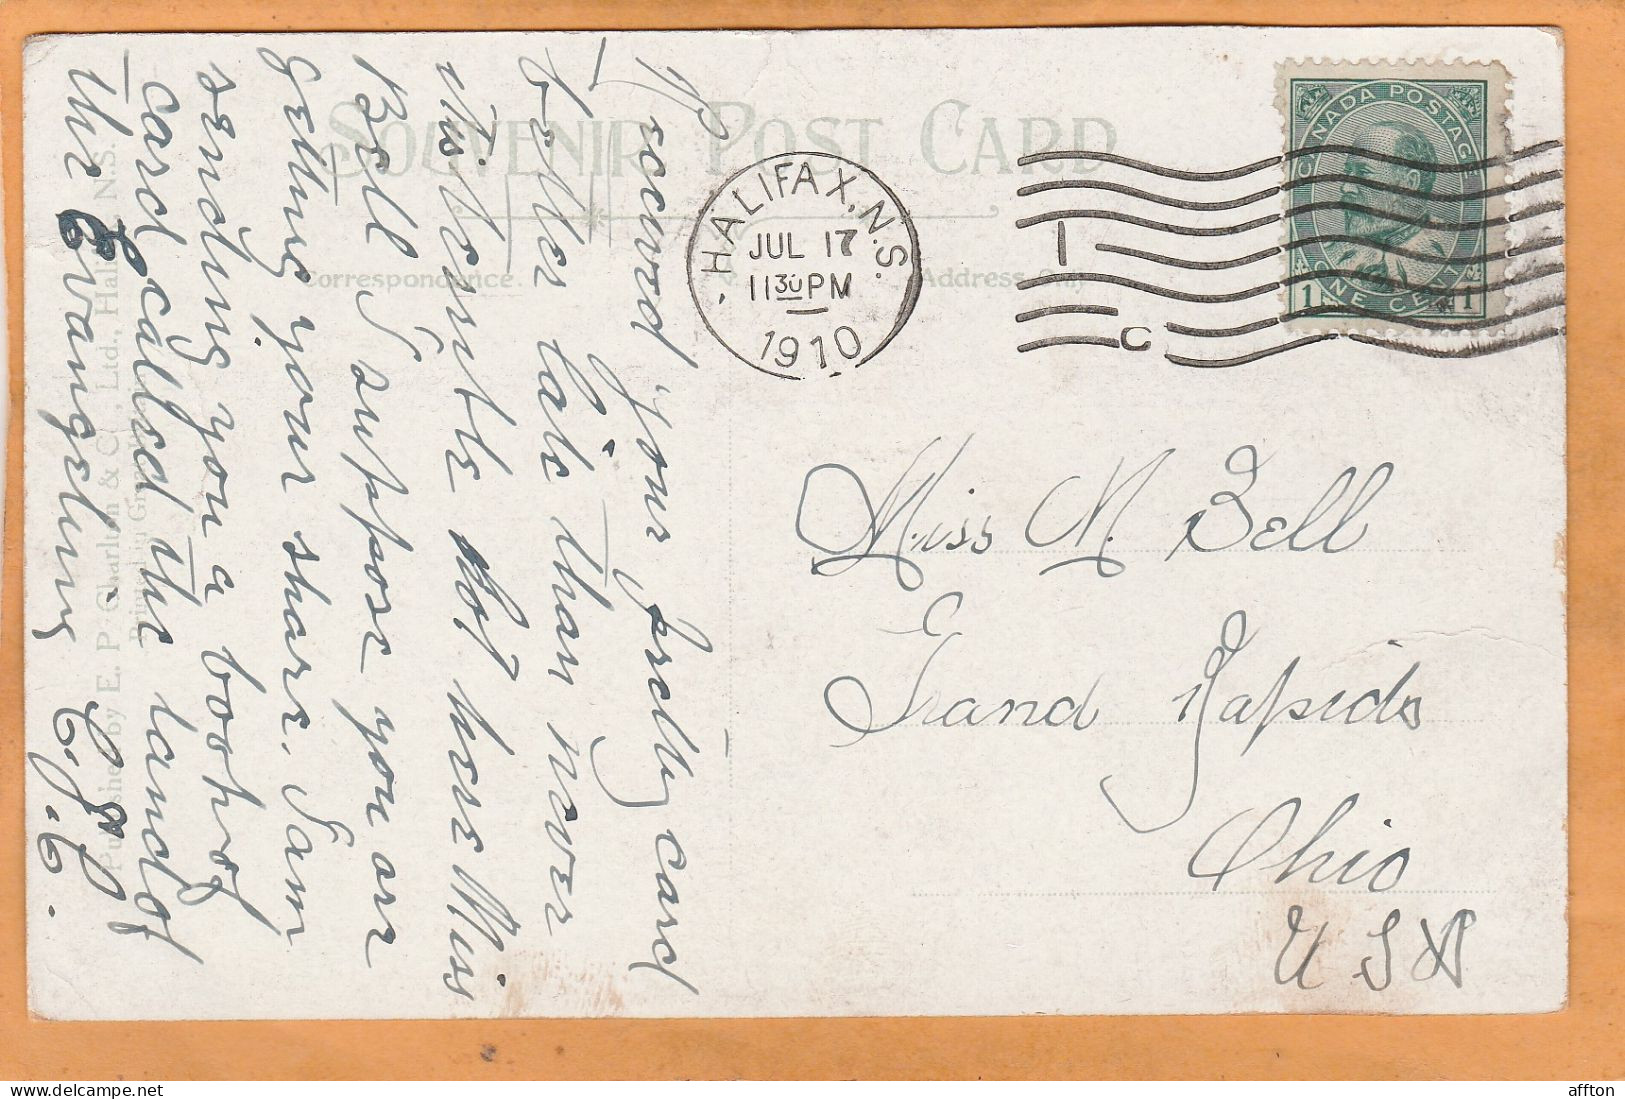 Souvenir Post Card
Correspondence.
Address Only
HALIFAX, N.S.
JUL 17
11 30 PM
1910
1 C
CANADA POSTAGE
1 ONE CENT 1
Recieved your pretty card
better late than never
its terrible hot here Miss
Bell I suppose you are
getting your share. I am
sending you a book of
card called the land of
the Evangeline
Miss M. Bell
Grand Rapids
Ohio
U S A
Published by E. P. Charlton & C., Ltd., Halifax, N.S.
Printed in
affton